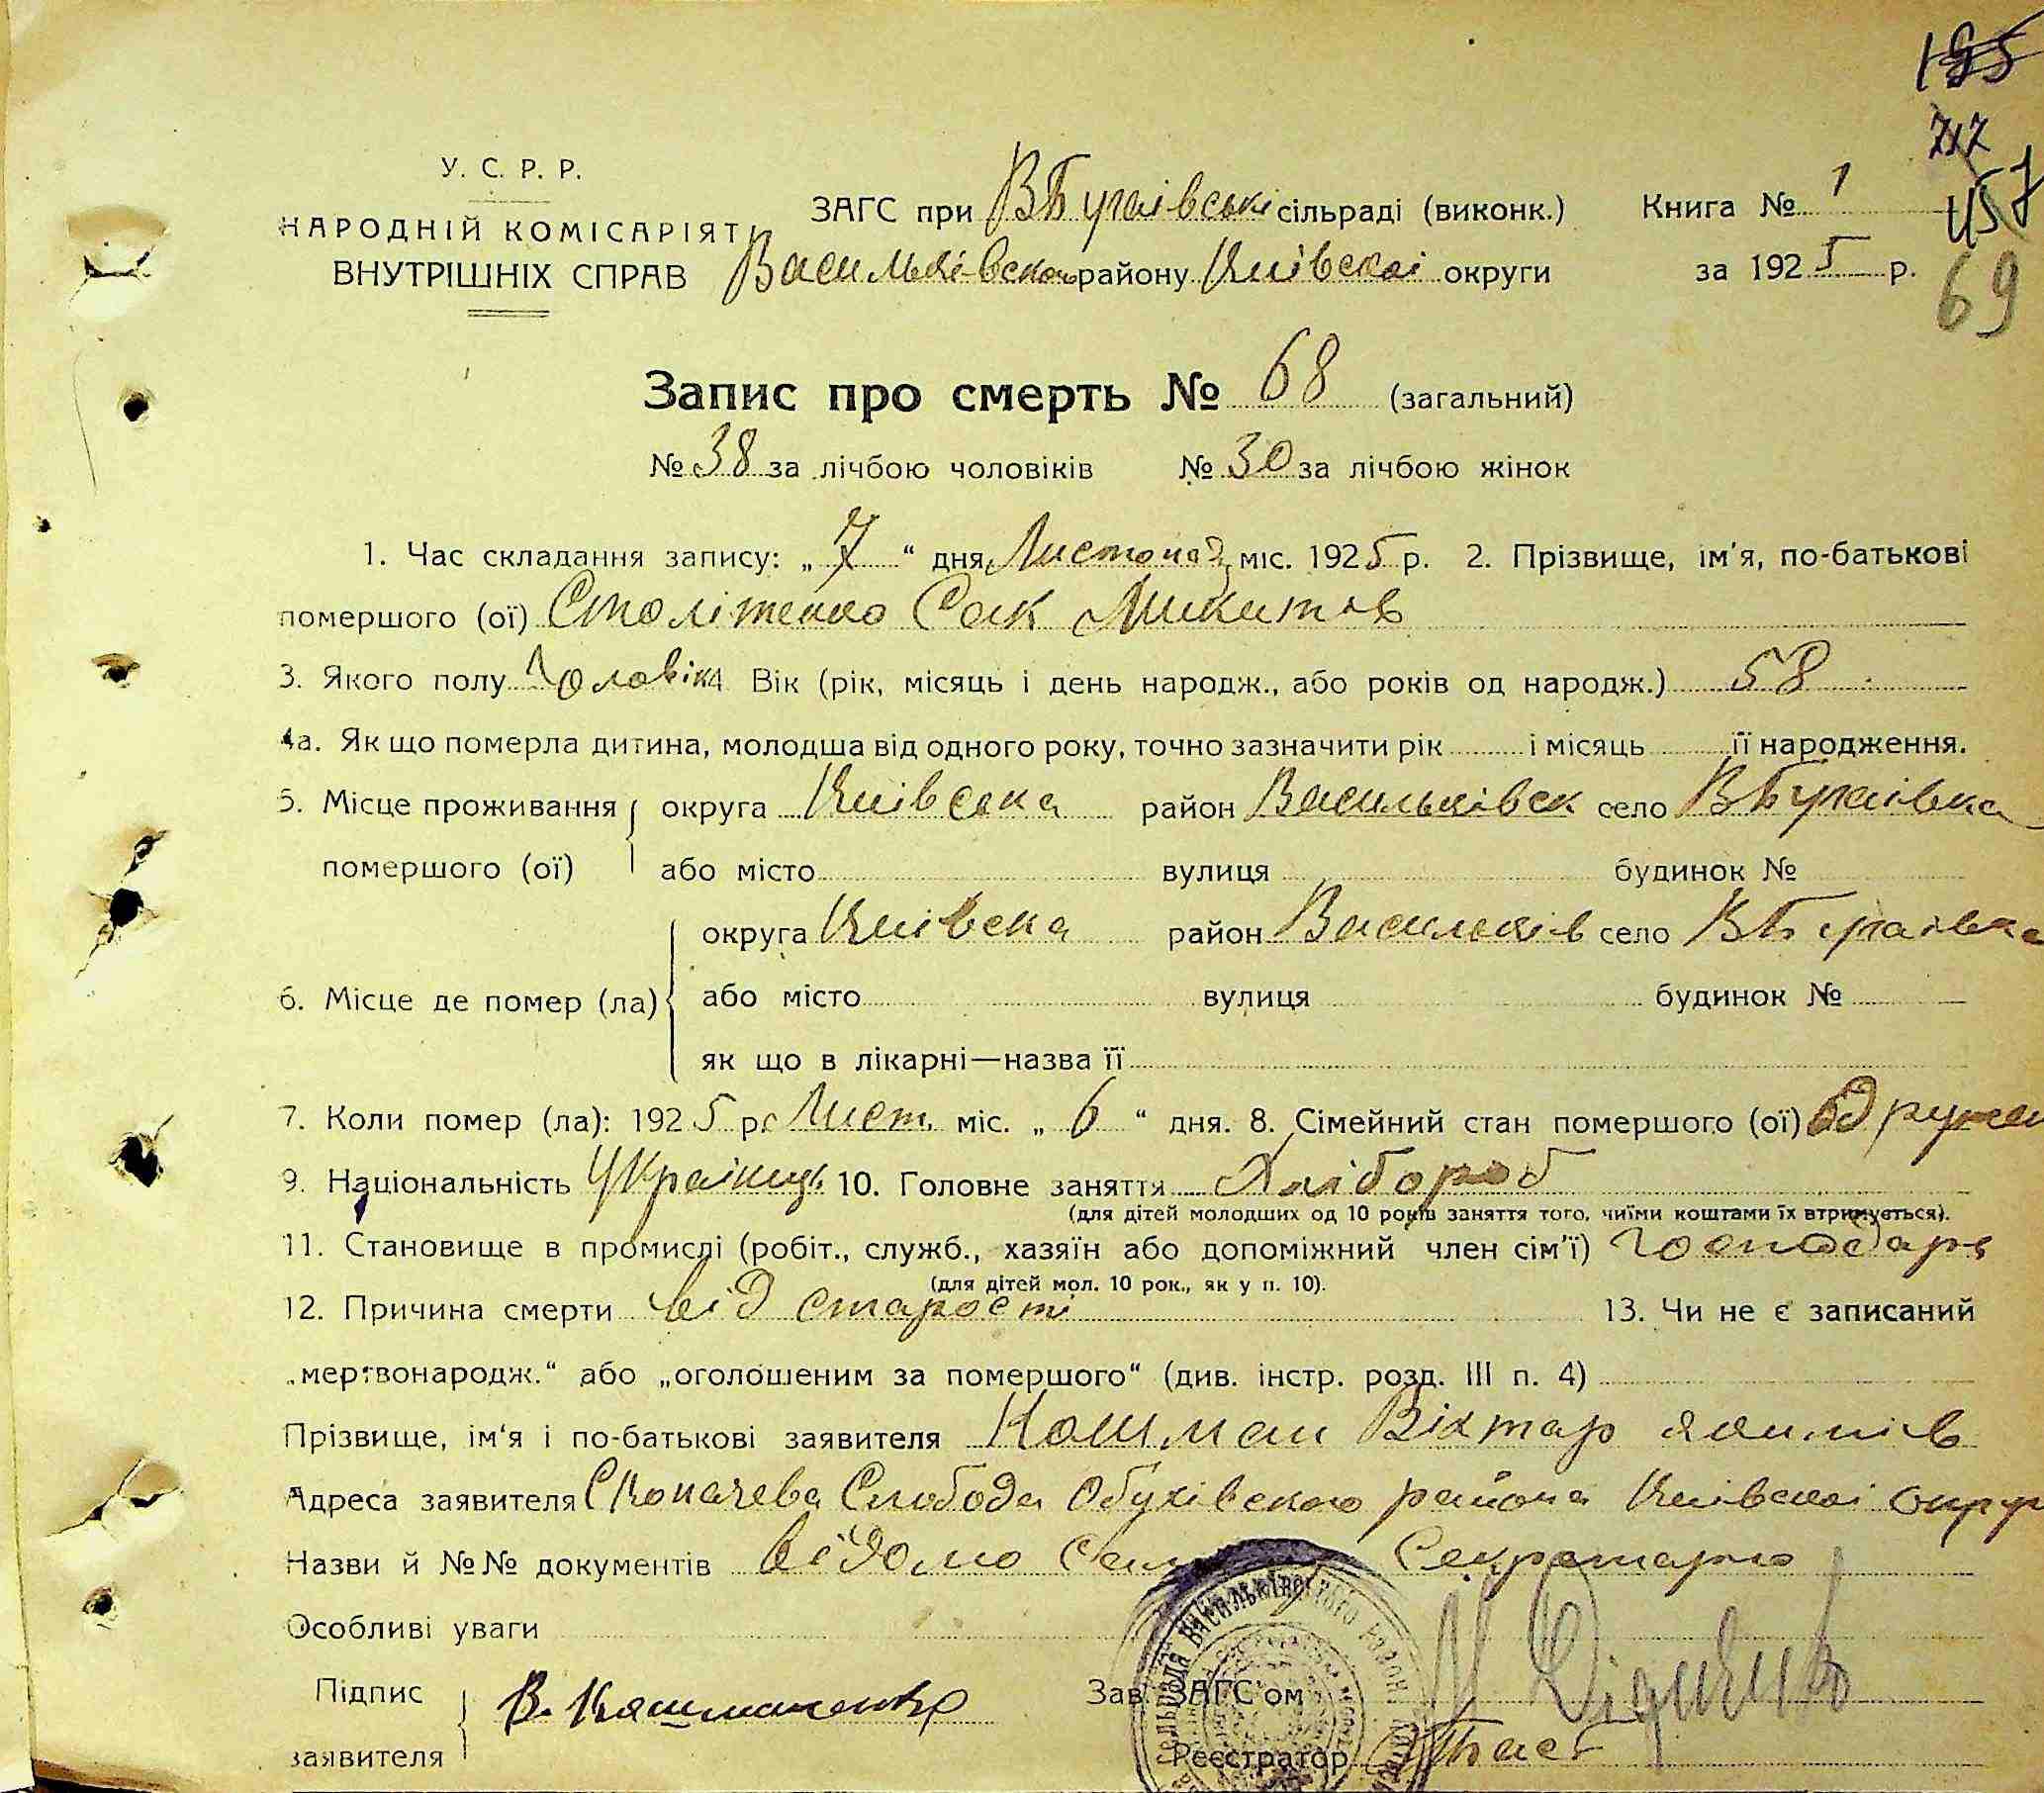 195
717
У. С. Р. Р.
НАРОДНІЙ КОМІСАРІЯТ
ВНУТРІШНІХ СПРАВ
ЗАГС при ВБугаївські сільраді (виконк.) Книга № 1
457
Васильківською району Київскоі округи за 1925 р.
69
Запис про смерть № 68 (загальний)
№ 38 за лічбою чоловіків № 30 за лічбою жінок
1. Час складання запису: „ 7 “ дня Листопад міс. 1925 р. 2. Прізвище, ім'я, по-батькові
помершого (ої) Столітенко Сак Микитов
3. Якого полу Чоловік Вік (рік, місяць і день народж., або років од народж.) 58
4а. Як що померла дитина, молодша від одного року, точно зазначити рік і місяць її народження.
5. Місце проживання округа Київска район Васильківск село ВБугаівка
помершого (ої) або місто вулиця будинок №
округа Київска район Васильків село ВБугаівка
6. Місце де помер (ла) або місто вулиця будинок №
як що в лікарні—назва її
7. Коли помер (ла): 1925 р. Лист. міс. „ 6 “ дня. 8. Сімейний стан помершого (ої) одружен
9. Національність Українець 10. Головне заняття Хлібороб
(для дітей молодших од 10 років заняття того, чиїми коштами їх втримується).
11. Становище в промислі (робіт., служб., хазяїн або допоміжний член сім'ї) господарь
(для дітей мол. 10 рок., як у п. 10).
12. Причина смерти від старости 13. Чи не є записаний
„мертвонародж.“ або „оголошеним за помершого“ (див. інстр. розд. III п. 4)
Прізвище, ім'я і по-батькові заявителя Кошман Віктар Якимів
Адреса заявителя Копачева Слобода Обухівского района Київскоі округ
Назви й №№ документів відомо Секретарю
Особливі уваги
Підпис В. Кашманенко Зав. ЗАГС'ом
заявителя Реєстратор